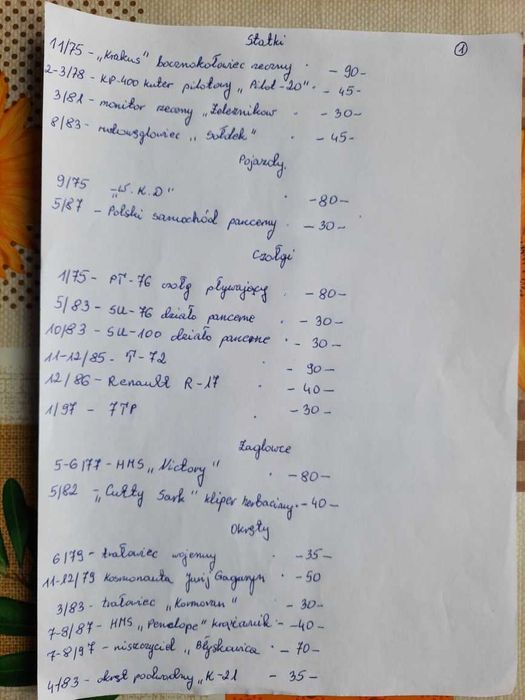 Statki
1
11/75 - „Krakus" bocznokołowiec rzeczny · - 90 -
2-3/78 - KP-400 kuter pilotowy „Pilot-20" · - 45 -
3/81 - monitor rzeczny „Żeleznikow · - 30 -
8/83 - rudowęglowiec „Sołdek" · - 45 -
Pojazdy.
9/75 - „W.K.D" · - 80 -
5/87 - Polski samochód pancerny · - 30 -
Czołgi
1/75 - PT-76 czołg pływający · - 80 -
5/83 - SU-76 działo pancerne · - 30 -
10/83 - SU-100 działo pancerne · - 30 -
11-12/85 - T-72 · - 90 -
12/86 - Renault R-17 · - 40 -
1/97 - 7TP · - 30 -
Żaglowce
5-6/77 - HMS „Victory" · - 80 -
5/82 - „Cutty Sark" kliper herbaciany · - 40 -
Okręty
6/79 - trałowiec wojenny · - 35 -
11-12/79 kosmonauta Jurij Gagaryn · - 50
3/83 - trałowiec „Kormoran" · - 30 -
7-8/87 - HMS „Penelope" krążownik - - 40 -
7-8/97 - niszczyciel „Błyskawica · - 70 -
4/83 - okręt podwodny „K-21 - 35 -